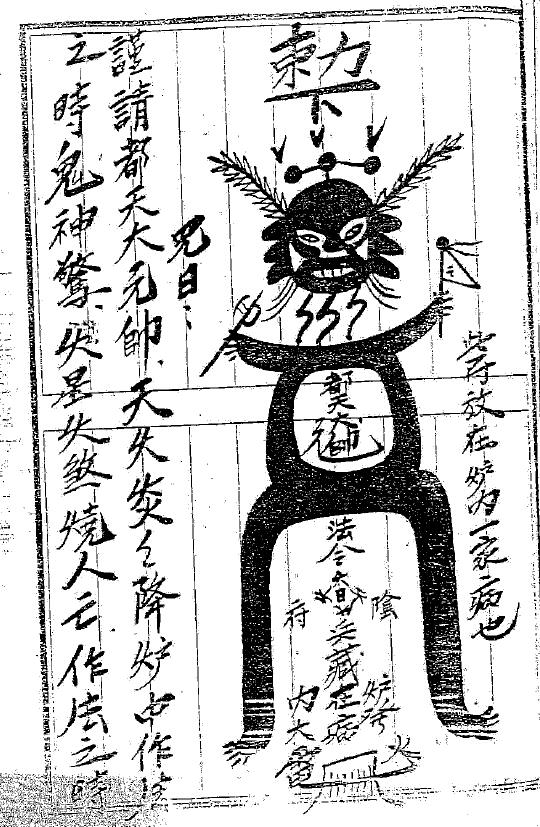 敕令
此符放在炉内一家病也
都天
元帥
法令
陰
府
藏在病
炉
火
内大
咒曰
謹請都天大元帥天火炎炎降炉中作法
之時鬼神驚火星火煞燒人亡作法之時